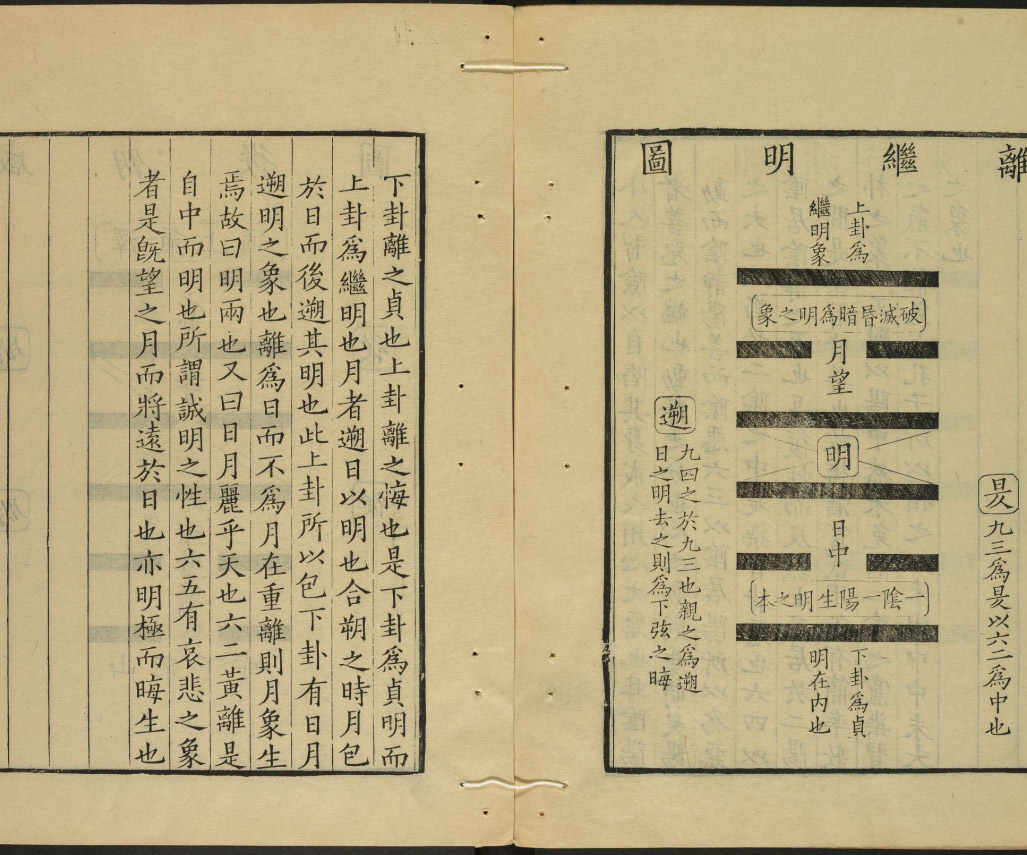 離繼明圖
昃
九三爲昃以六二爲中也
上卦爲
繼明象
破滅昬暗爲明之象
月望
明
日中
一陰一陽生明之本
下卦爲貞
明在内也
遡
九四之於九三也親之爲遡
日之明去之則爲下弦之晦
下卦離之貞也上卦離之悔也是下卦爲貞明而
上卦爲繼明也月者遡日以明也合朔之時月包
於日而後遡其明也此上卦所以包下卦有日月
遡明之象也離爲日而不爲月在重離則月象生
焉故曰明兩也又曰日月麗乎天也六二黃離是
自中而明也所謂誠明之性也六五有哀悲之象
者是旣望之月而將遠於日也亦明極而晦生也